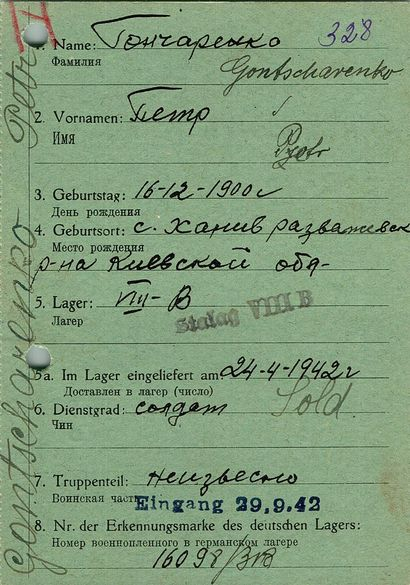 328
1. Name: Гончаренко
Фамилия
Gontscharenko
2. Vornamen: Петр
Имя
Pjotr
3. Geburtstag: 16-12-1900 г
День рождения
4. Geburtsort: с. Ханив разважевск
Место рождения
р-на Киевской обл-
5. Lager: VIII-B
Лагер
Stalag VIII B
5a. Im Lager eingeliefert am: 24-4-1942 г
Доставлен в лагер (число)
6. Dienstgrad: солдат Sold.
Чин
7. Truppenteil: неизвесно
Воинская часть
Eingang 29.9.42
8. Nr. der Erkennungsmarke des deutschen Lagers:
Номер военнопленного в германском лагере
16098/
Gontscharenko Petr